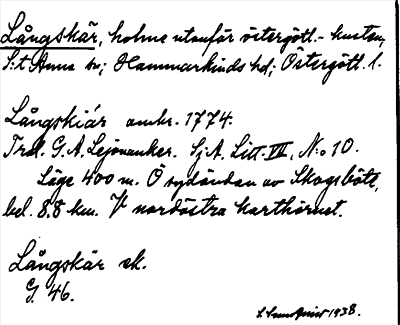 Långskär, holme utanför östergött.-kusten,
S:t Anna sn; Hammarkinds hd; Östergötl. l.
Långskiär omkr. 1774.
Trol. G. A. Lejonanker. Sj. A. Litt. VIII, N:o 10.
Läge 400 m. Ö sydändan av Skogsböte,
bel. 8.8 km. V nordöstra karthörnet.
Långskär ek.
G. 46.
1938.